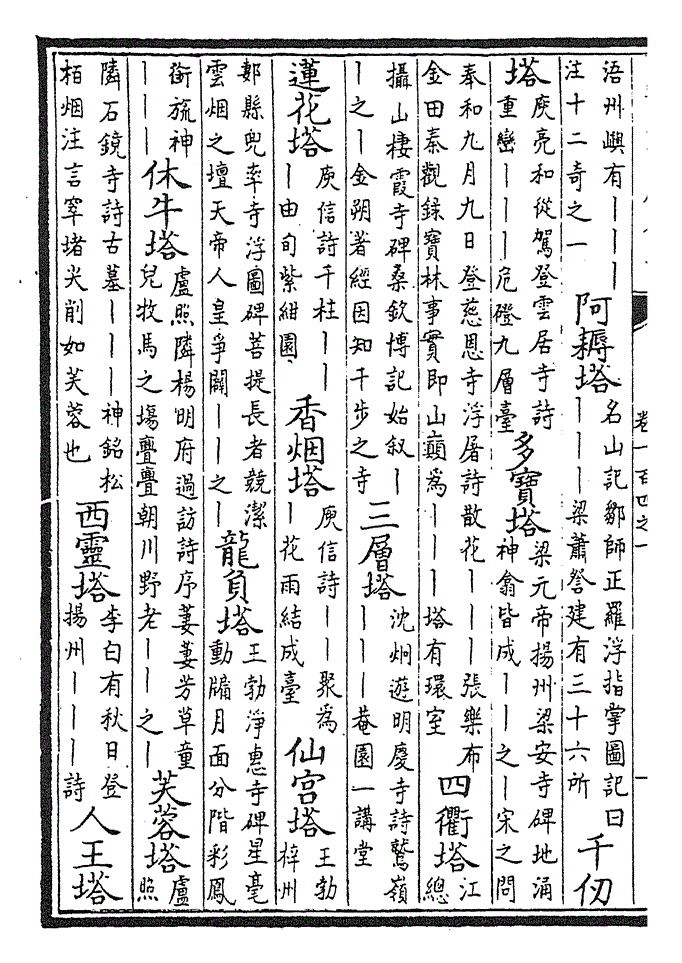 卷一百四之一 一
浯州嶼有｜｜｜注十二奇之一 阿耨塔 名山記鄒師正羅浮指掌圖記曰｜｜｜梁蕭詧建有三十六所 千仞
塔 庾亮和從駕登雲居寺詩重巒｜｜｜危磴九層臺 多寶塔 梁元帝揚州梁安寺碑地涌神翕皆成｜｜之｜宋之問
奉和九月九日登慈恩寺浮屠詩散花｜｜｜張樂布金田秦觀錄寶林事實即山巔為｜｜｜塔有環室 四衢塔 江總
攝山棲霞寺碑桑欽博記始叙｜｜之｜金朔著經因知千步之寺 三層塔 沈炯遊明慶寺詩鷲嶺｜｜｜菴園一講堂
蓮花塔 庾信詩千柱｜｜｜由旬紫紺園 香烟塔 庾信詩｜｜聚為｜花雨結成臺 仙宮塔 王勃梓州
郪縣兜率寺浮圖碑菩提長者競潔雲烟之壇天帝人皇爭闢｜｜之｜ 龍負塔 王勃淨惠寺碑星毫動牖月面分階彩鳳
銜旒神｜｜｜ 休牛塔 盧照隣楊明府過訪詩序萋萋芳草童兒牧馬之塲亹亹朝川野老｜｜之｜ 芙蓉塔 盧照
隣石鏡寺詩古墓｜｜｜神銘松栢烟注言窣堵尖削如芙蓉也 西靈塔 李白有秋日登揚州｜｜｜詩 人王塔